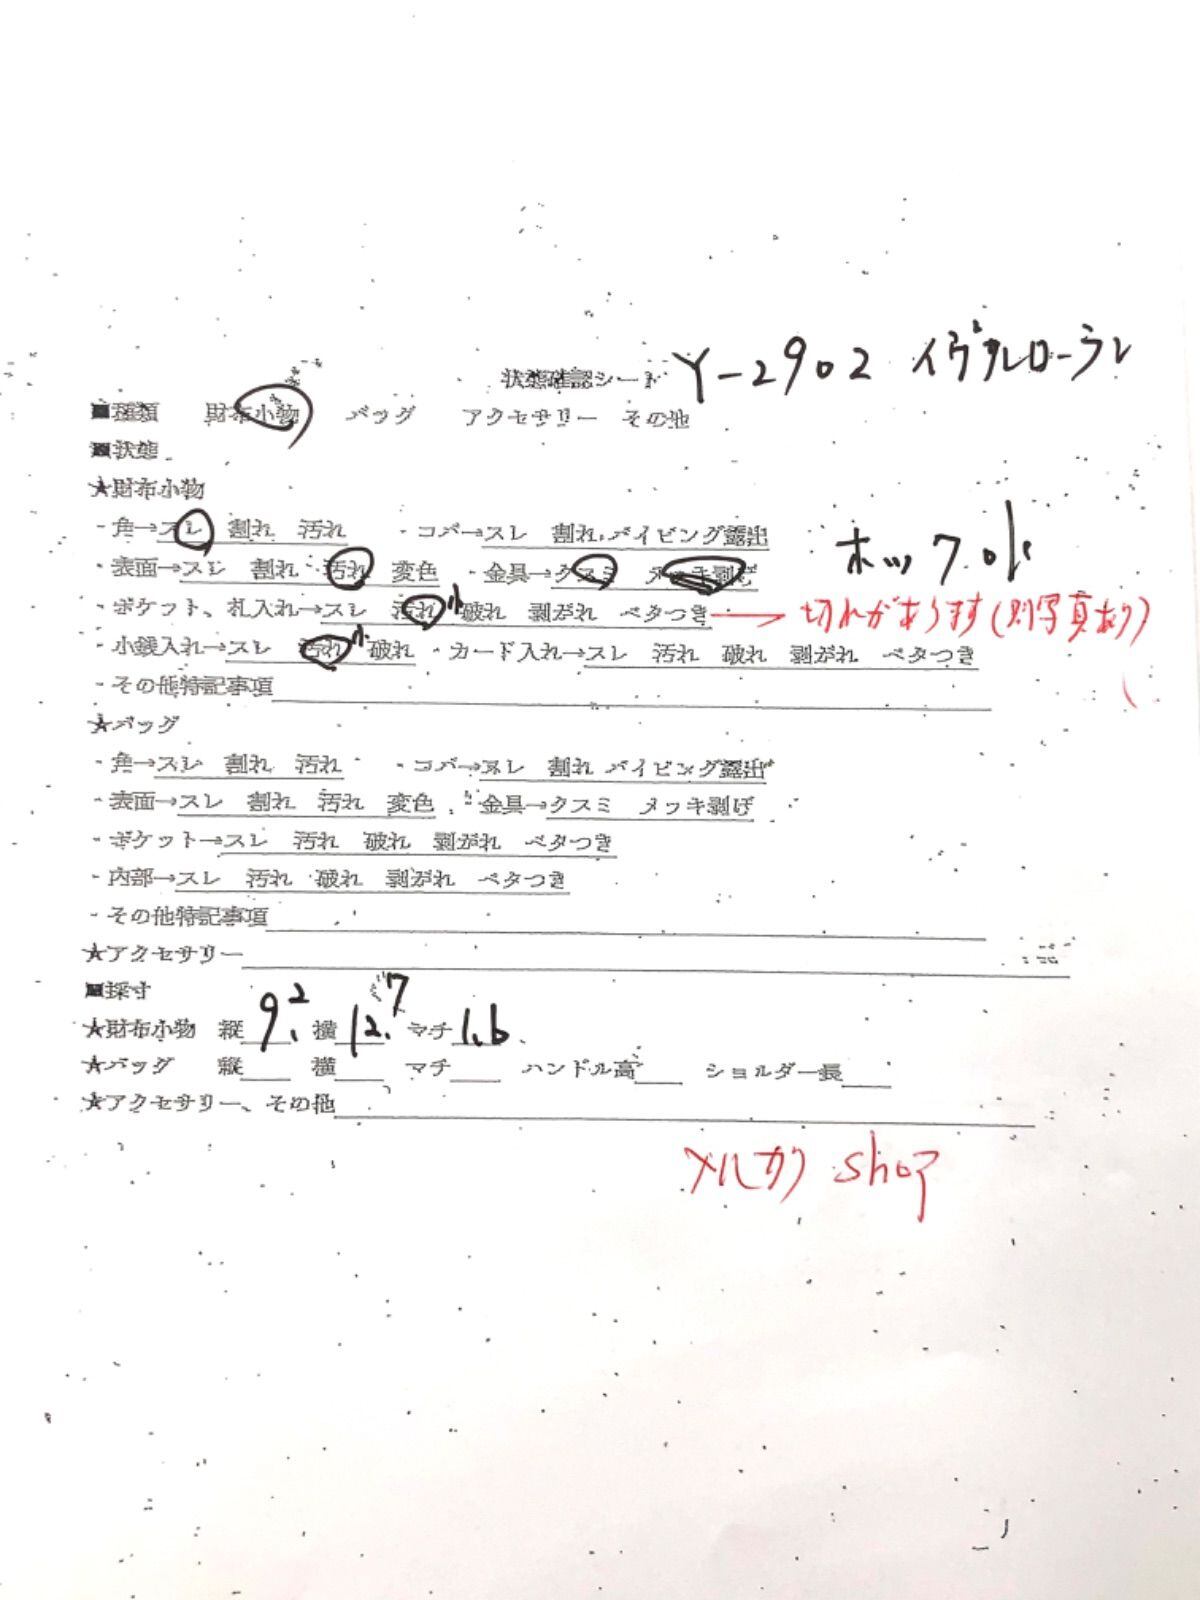 状態確認シート Y-2902 イヴサンローラン
■種類 財布小物 バッグ アクセサリー その他
■状態
★財布小物
・角→スレ 割れ 汚れ ・コバ→スレ 割れ パイピング露出
ホック.ok
・表面→スレ 割れ 汚れ 変色 ・金具→クスミ メッキ剥げ
・ポケット、札入れ→スレ 汚れ小 破れ 剥がれ ベタつき→切れがあります(別写真あり)
・小銭入れ→スレ 汚れ小 破れ ・カード入れ→スレ 汚れ 破れ 剥がれ ベタつき
・その他特記事項
★バッグ
・角→スレ 割れ 汚れ ・コバ→スレ 割れ パイピング露出
・表面→スレ 割れ 汚れ 変色 ・金具→クスミ メッキ剥げ
・ポケット→スレ 汚れ 破れ 剥がれ ベタつき
・内部→スレ 汚れ 破れ 剥がれ ベタつき
・その他特記事項
★アクセサリー
■採寸
★財布小物 縦9.2 横12.7 マチ1.6
★バッグ 縦 横 マチ ハンドル高 ショルダー長
★アクセサリー、その他
メルカリ shop